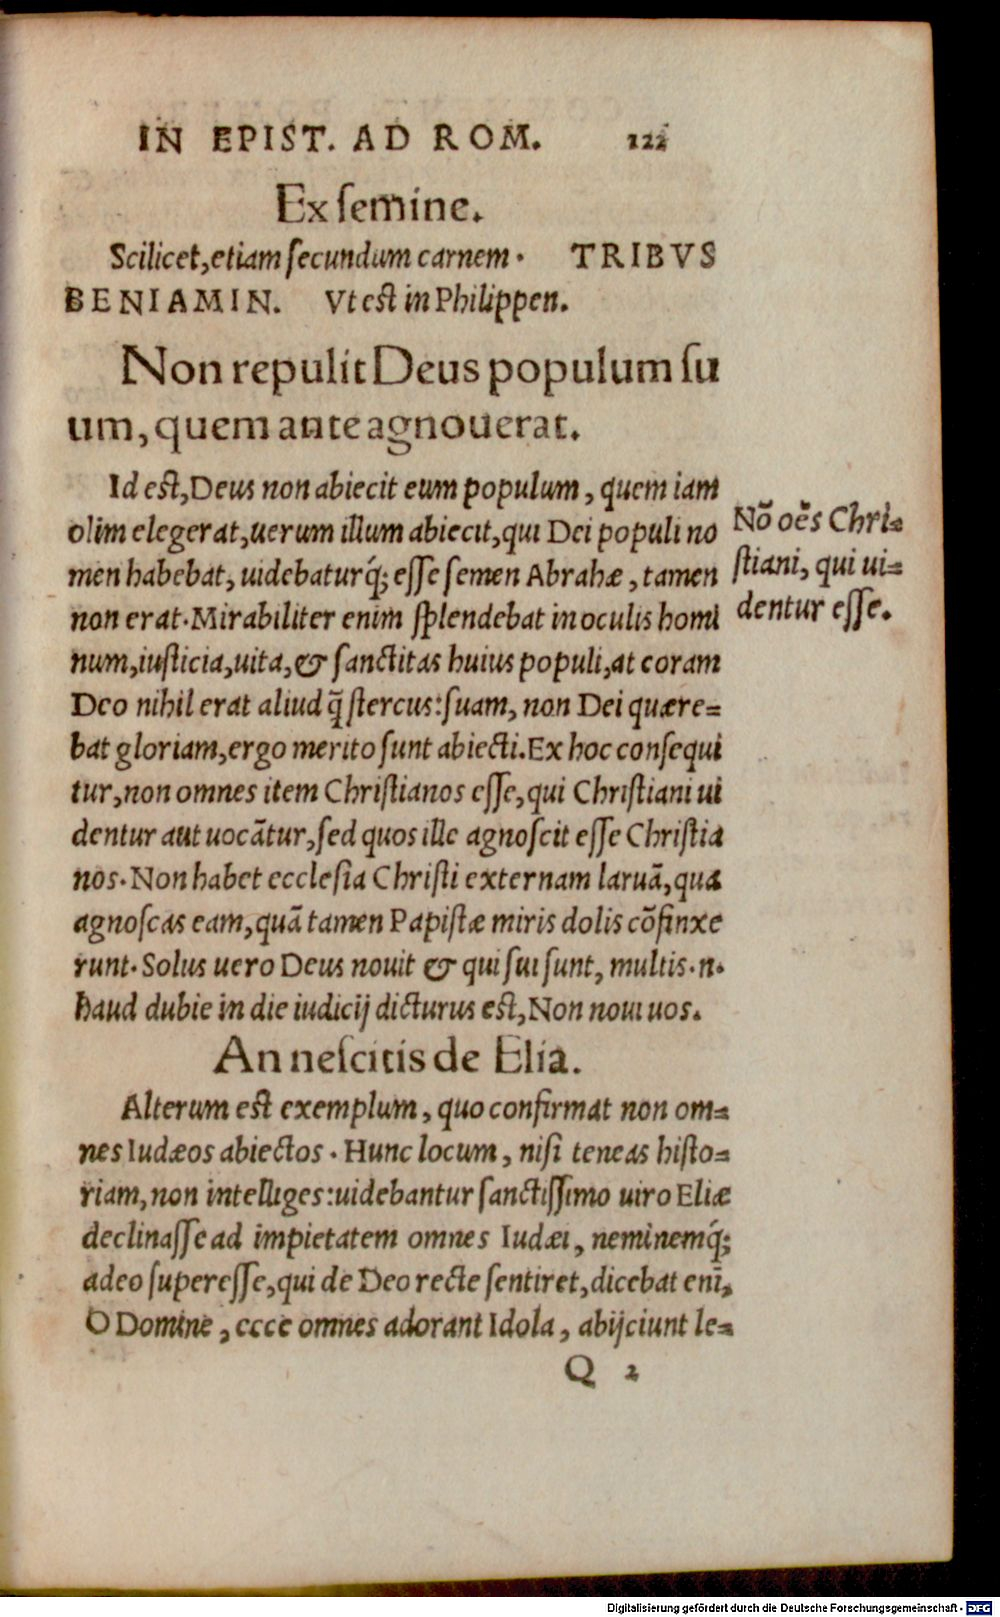 IN EPIST. AD ROM. 122
Ex semine.
Scilicet, etiam secundum carnem. TRIBVS
BENIAMIN. Vt est in Philippen.
Non repulit Deus populum su
um, quem ante agnouerat.
Id est, Deus non abiecit eum populum, quem iam
olim elegerat, uerum illum abiecit, qui Dei populi no
men habebat, uidebaturq́; esse semen Abrahæ, tamen
non erat. Mirabiliter enim splendebat in oculis homi
num, iusticia, uita, & sanctitas huius populi, at coram
Deo nihil erat aliud q̃ stercus: suam, non Dei quære=
bat gloriam, ergo merito sunt abiecti. Ex hoc consequi
tur, non omnes item Christianos esse, qui Christiani ui
dentur aut uocãtur, sed quos ille agnoscit esse Christia
nos. Non habet ecclesia Christi externam laruã, qua
agnoscas eam, quã tamen Papistæ miris dolis cõfinxe
runt. Solus uero Deus nouit & qui sui sunt, multis.n.
haud dubie in die iudicij dicturus est, Non noui uos.
Nõ oẽs Chri=
stiani, qui ui=
dentur esse.
An nescitis de Elia.
Alterum est exemplum, quo confirmat non om=
nes Iudæos abiectos. Hunc locum, nisi teneas histo=
riam, non intelliges: uidebantur sanctissimo uiro Eliæ
declinasse ad impietatem omnes Iudæi, neminemq́;
adeo superesse, qui de Deo recte sentiret, dicebat enĩ,
O Domine, ecce omnes adorant Idola, abijciunt le=
Q 2
Digitalisierung gefördert durch die Deutsche Forschungsgemeinschaft - DFG